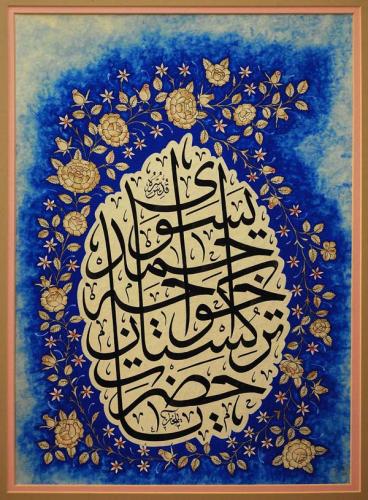 حضرت پیر
ترکستان
خواجه
احمد
یسوی
قدس سره